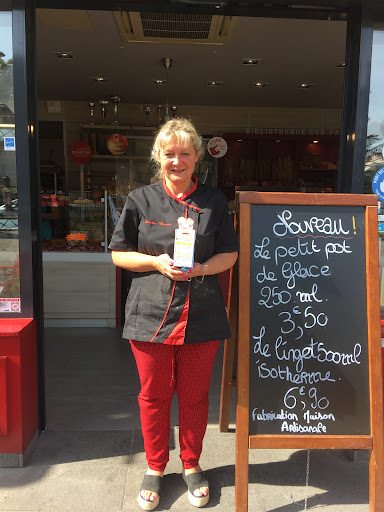 BIBLIOTHEQUE DES PA
Nouveau !
Le petit pot
de Glace
250 ml.
3,€50
Le lingot 500ml
isotherme.
6,€90
Fabrication Maison
Artisanale